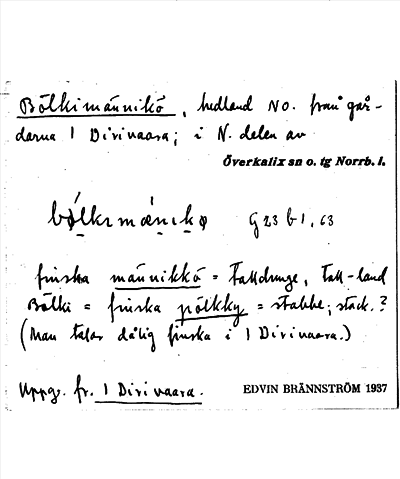 Bölkimännikö, hedland NO. från går-
darna i Dirivaara; i N. delen av
Överkalix sn o. tg Norrb. l.
bǿlkımænıkø G 23 b 1, 63
finska männikkö = talldunge, tall-land
Bölki = finska pölkky = stabbe; stock. ?
(Man talar dålig finska i i Dirivaara.)
Uppg. fr. i Dirivaara.
EDVIN BRÄNNSTRÖM 1937